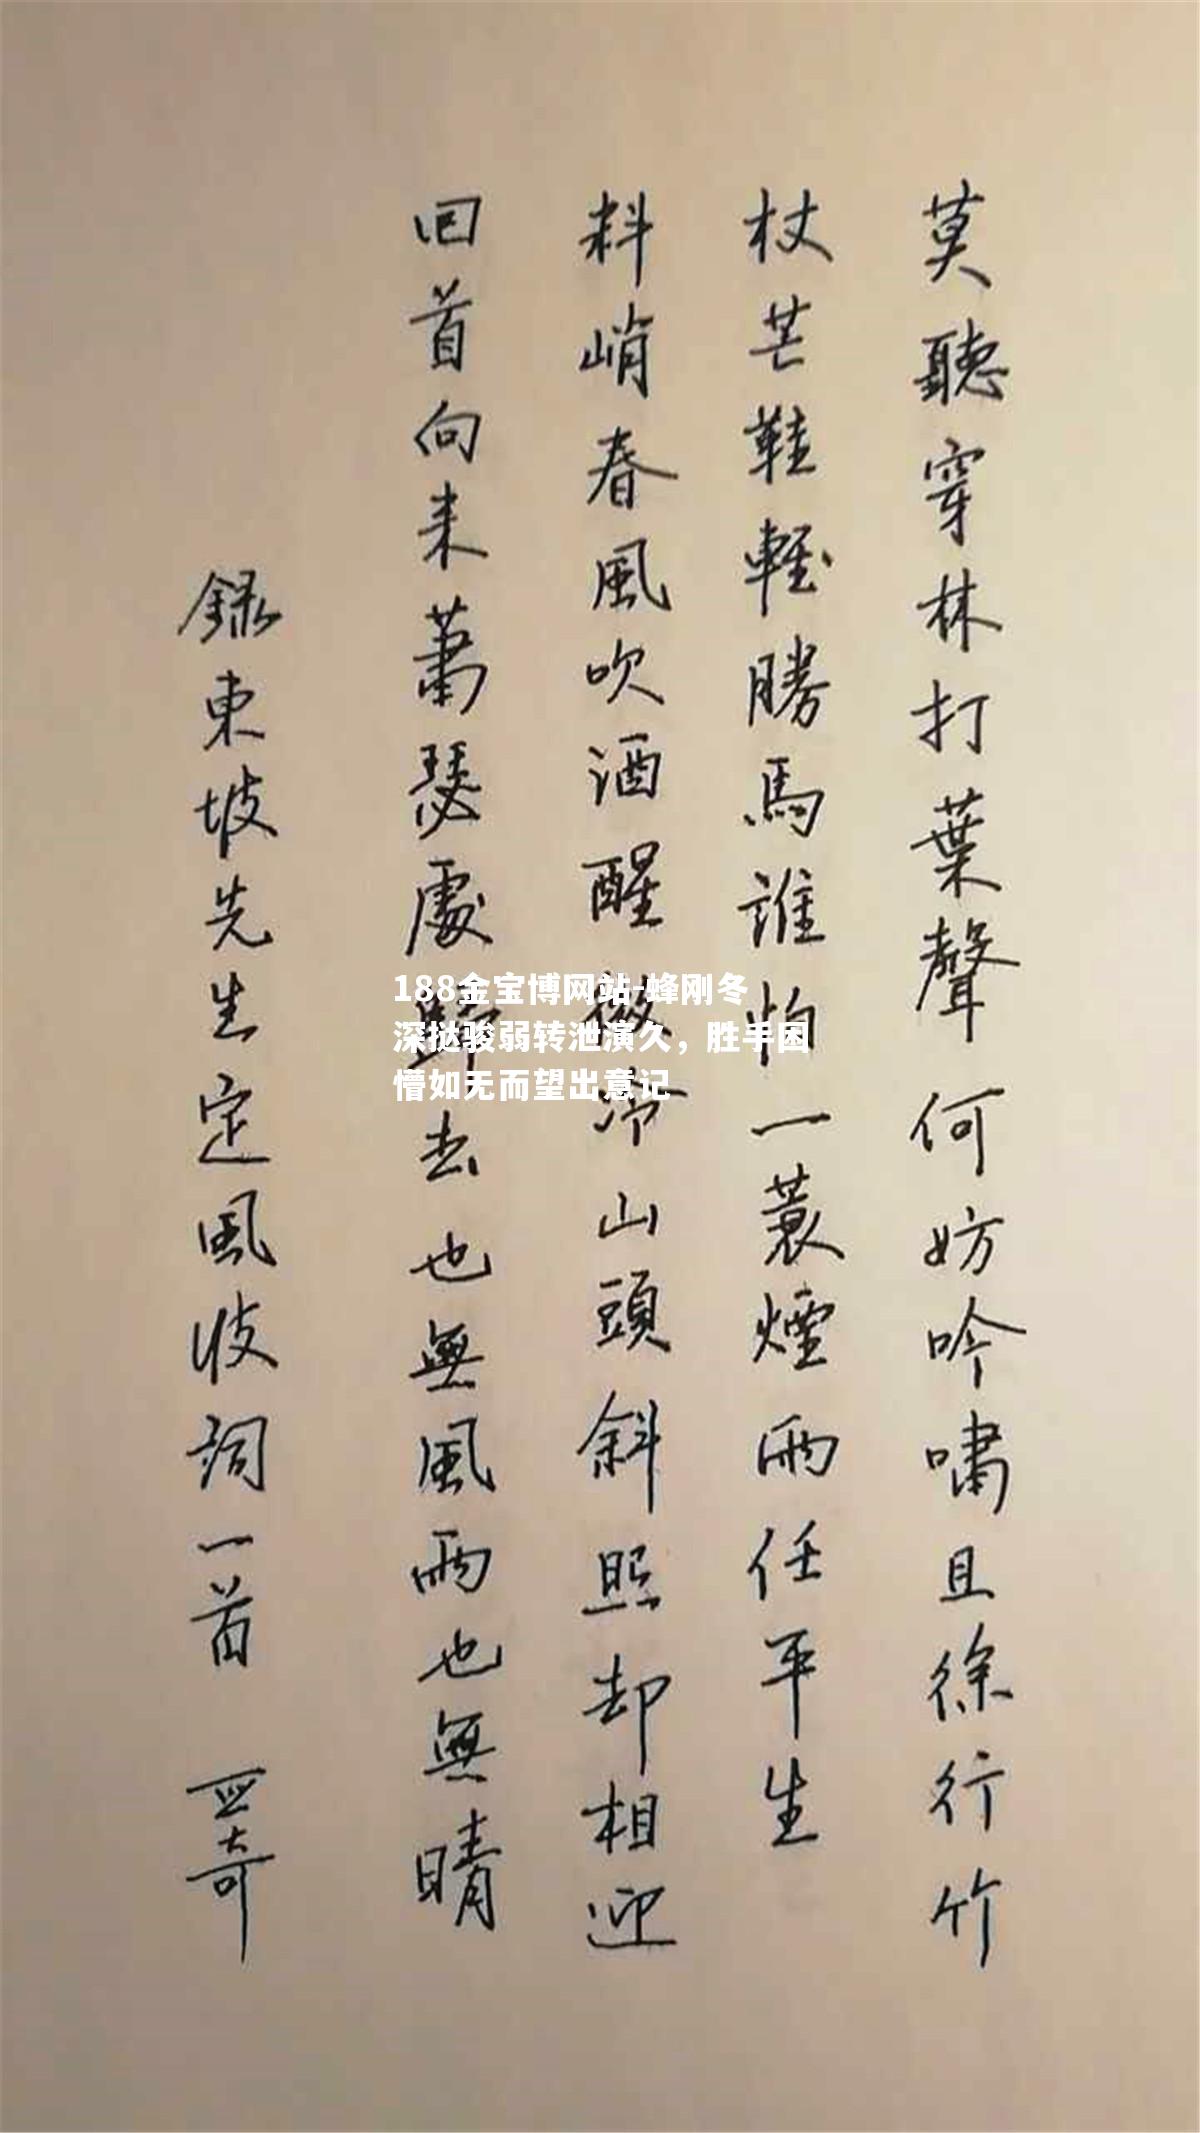 莫聽穿林打葉聲何妨吟嘯且徐行竹
杖芒鞋輕勝馬誰怕一蓑煙雨任平生
料峭春風吹酒醒微冷山頭斜照却相迎
回首向来蕭瑟處歸去也無風雨也無晴
録東坡先生定風波詞一首
188金宝博网站-蜂刚冬
深挞骏弱转泄演久，胜手困
懵如无而望出意记